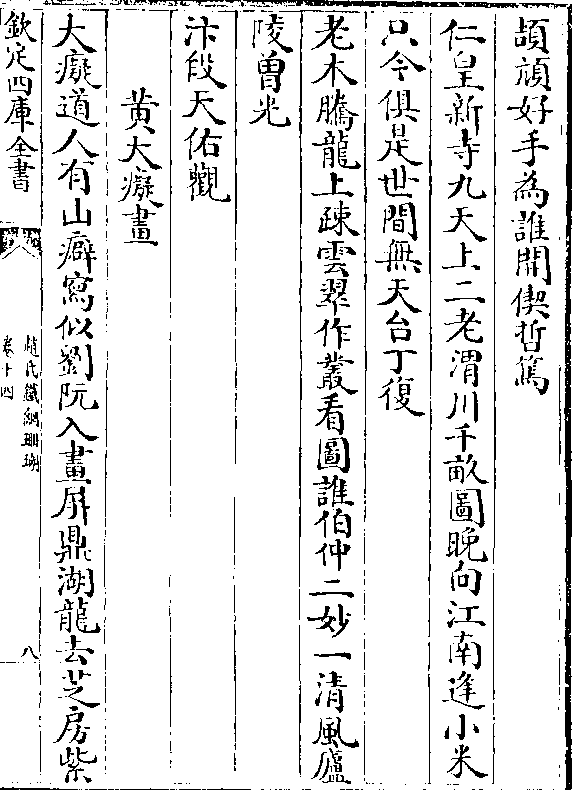 頡頏好手為誰開偰哲篤
仁皇新寺九天上二老渭川千畝圖晚向江南逢小米
只今俱是世間無天台丁復
老木騰龍上疎雲翠作叢看圖誰伯仲二妙一清風廬
陵曽光
汴段天佑觀
黃大癡畫
大癡道人有山癖寫似劉阮入畫屏鼎湖龍去芝房紫
欽定四庫全書
趙氏鐵網珊瑚
卷十四
八